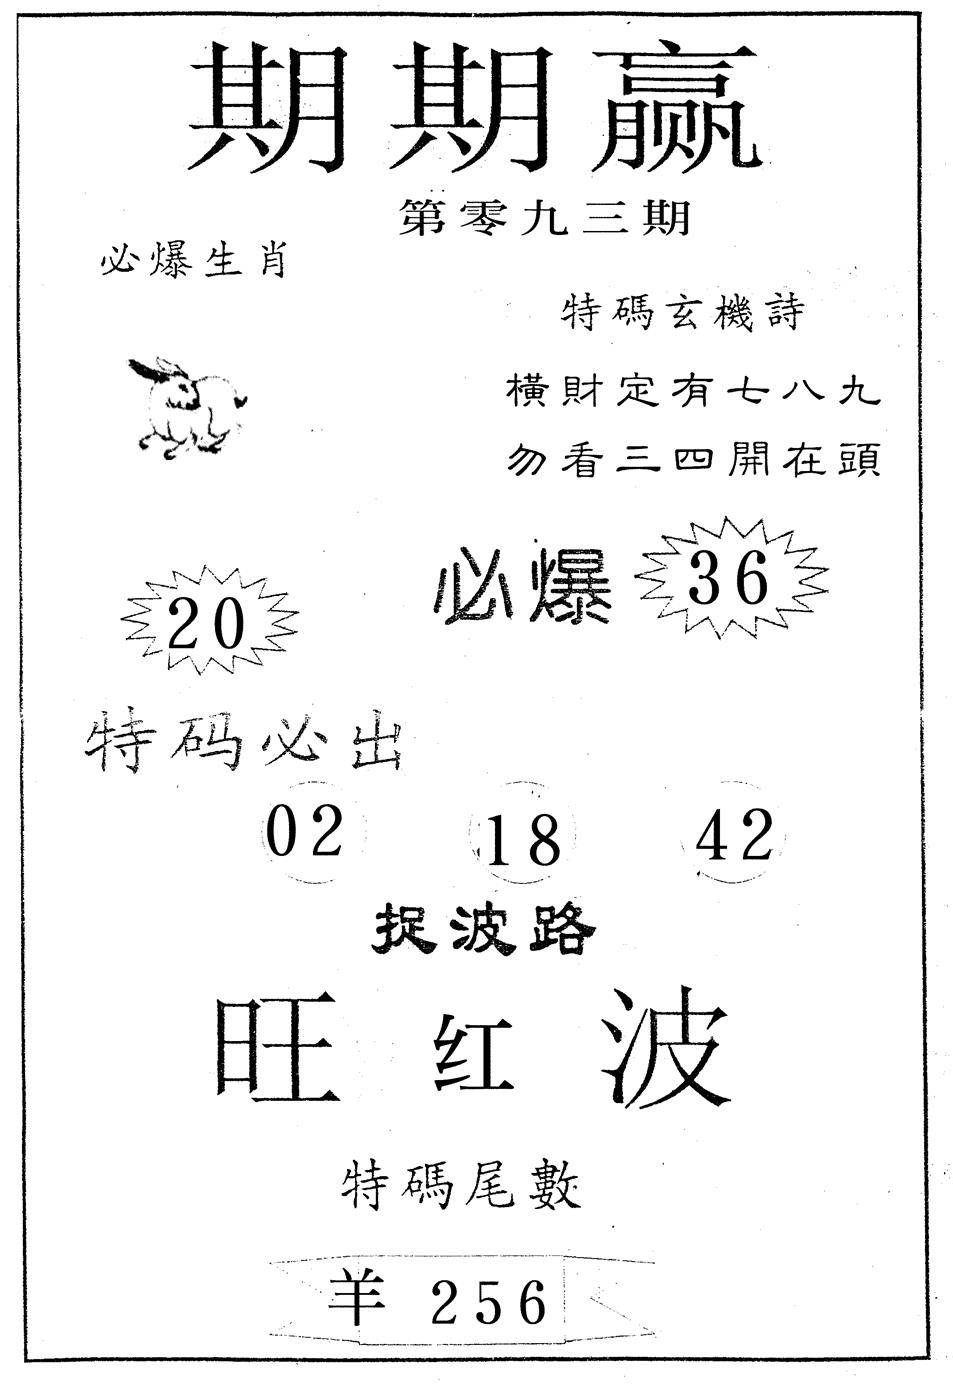 期期赢
第零九三期
必爆生肖
特碼玄機詩
橫財定有七八九
勿看三四開在頭
必爆 36
20
特码必出
02 18 42
捉波路
旺红波
特碼尾數
羊 256